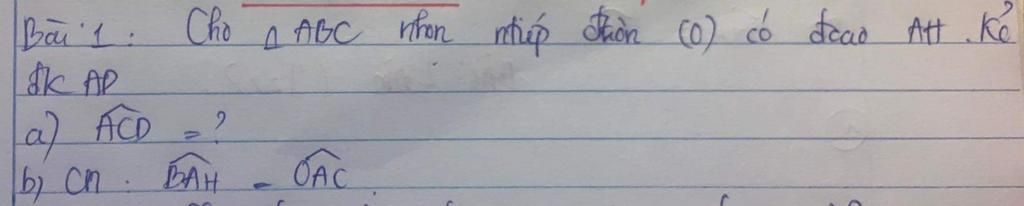 Bài 1: Cho △ABC nhọn ntiếp đtròn (O) có đcao AH. Kẻ
đk AD
a) \widehat{ACD} = ?
b) Cm: \widehat{BAH} = \widehat{OAC}.